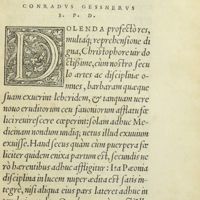 CONRADVS GESSNERVS
S. P. D.
DOLENDA profecto res,
multaq; reprehensione di
gna, Christophore uir do
ctissime, cùm nostro secu
lo artes ac disciplinæ o-
mnes, barbaram quæque
suam exuerint leberidem, & tanquam uere
nouo eruditorum eo fauoniorum afflatu fœ
liciter uirescere cœperint: solam adhuc Me
dicinam nondum undiq; uetus illud exuuium
exuisse. Haud secus quàm cum puerpera fœ
liciter quidem enixa partum est, secundis ue
rò hærentibus adhuc affligitur: Ita Pæonia
disciplina in lucem nuper ædita est satis in-
tegrè, nisi aliqua eius pars lateret adhuc in